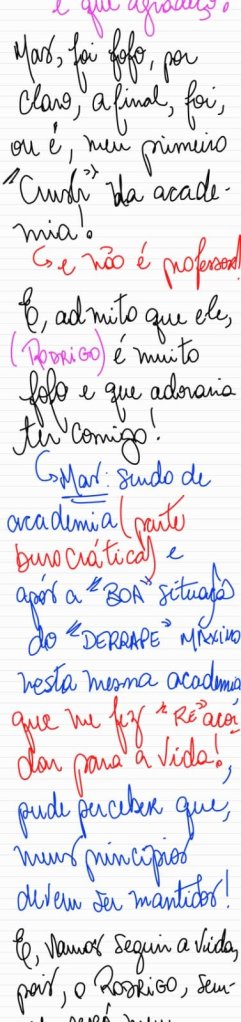 e que agradeço!
Mas, foi fofo, por
claro, afinal, foi,
ou é, meu primeiro
"Crush" da acade-
mia!
↳ e não é professor!
E, admito que ele,
(RODRIGO) é muito
fofo e que adoraria
ter comigo!
↳ Mas: sendo de
academia (parte
burocrática) e
após a "BOA" situação
do "DERRAPE" MÁXIMO
nesta mesma academia
que me fez "RE" acor
dar para a vida!,
pude perceber que,
meus princípios
devem ser mantidos!
E, vamos seguir a vida,
pois, o RODRIGO, sem-